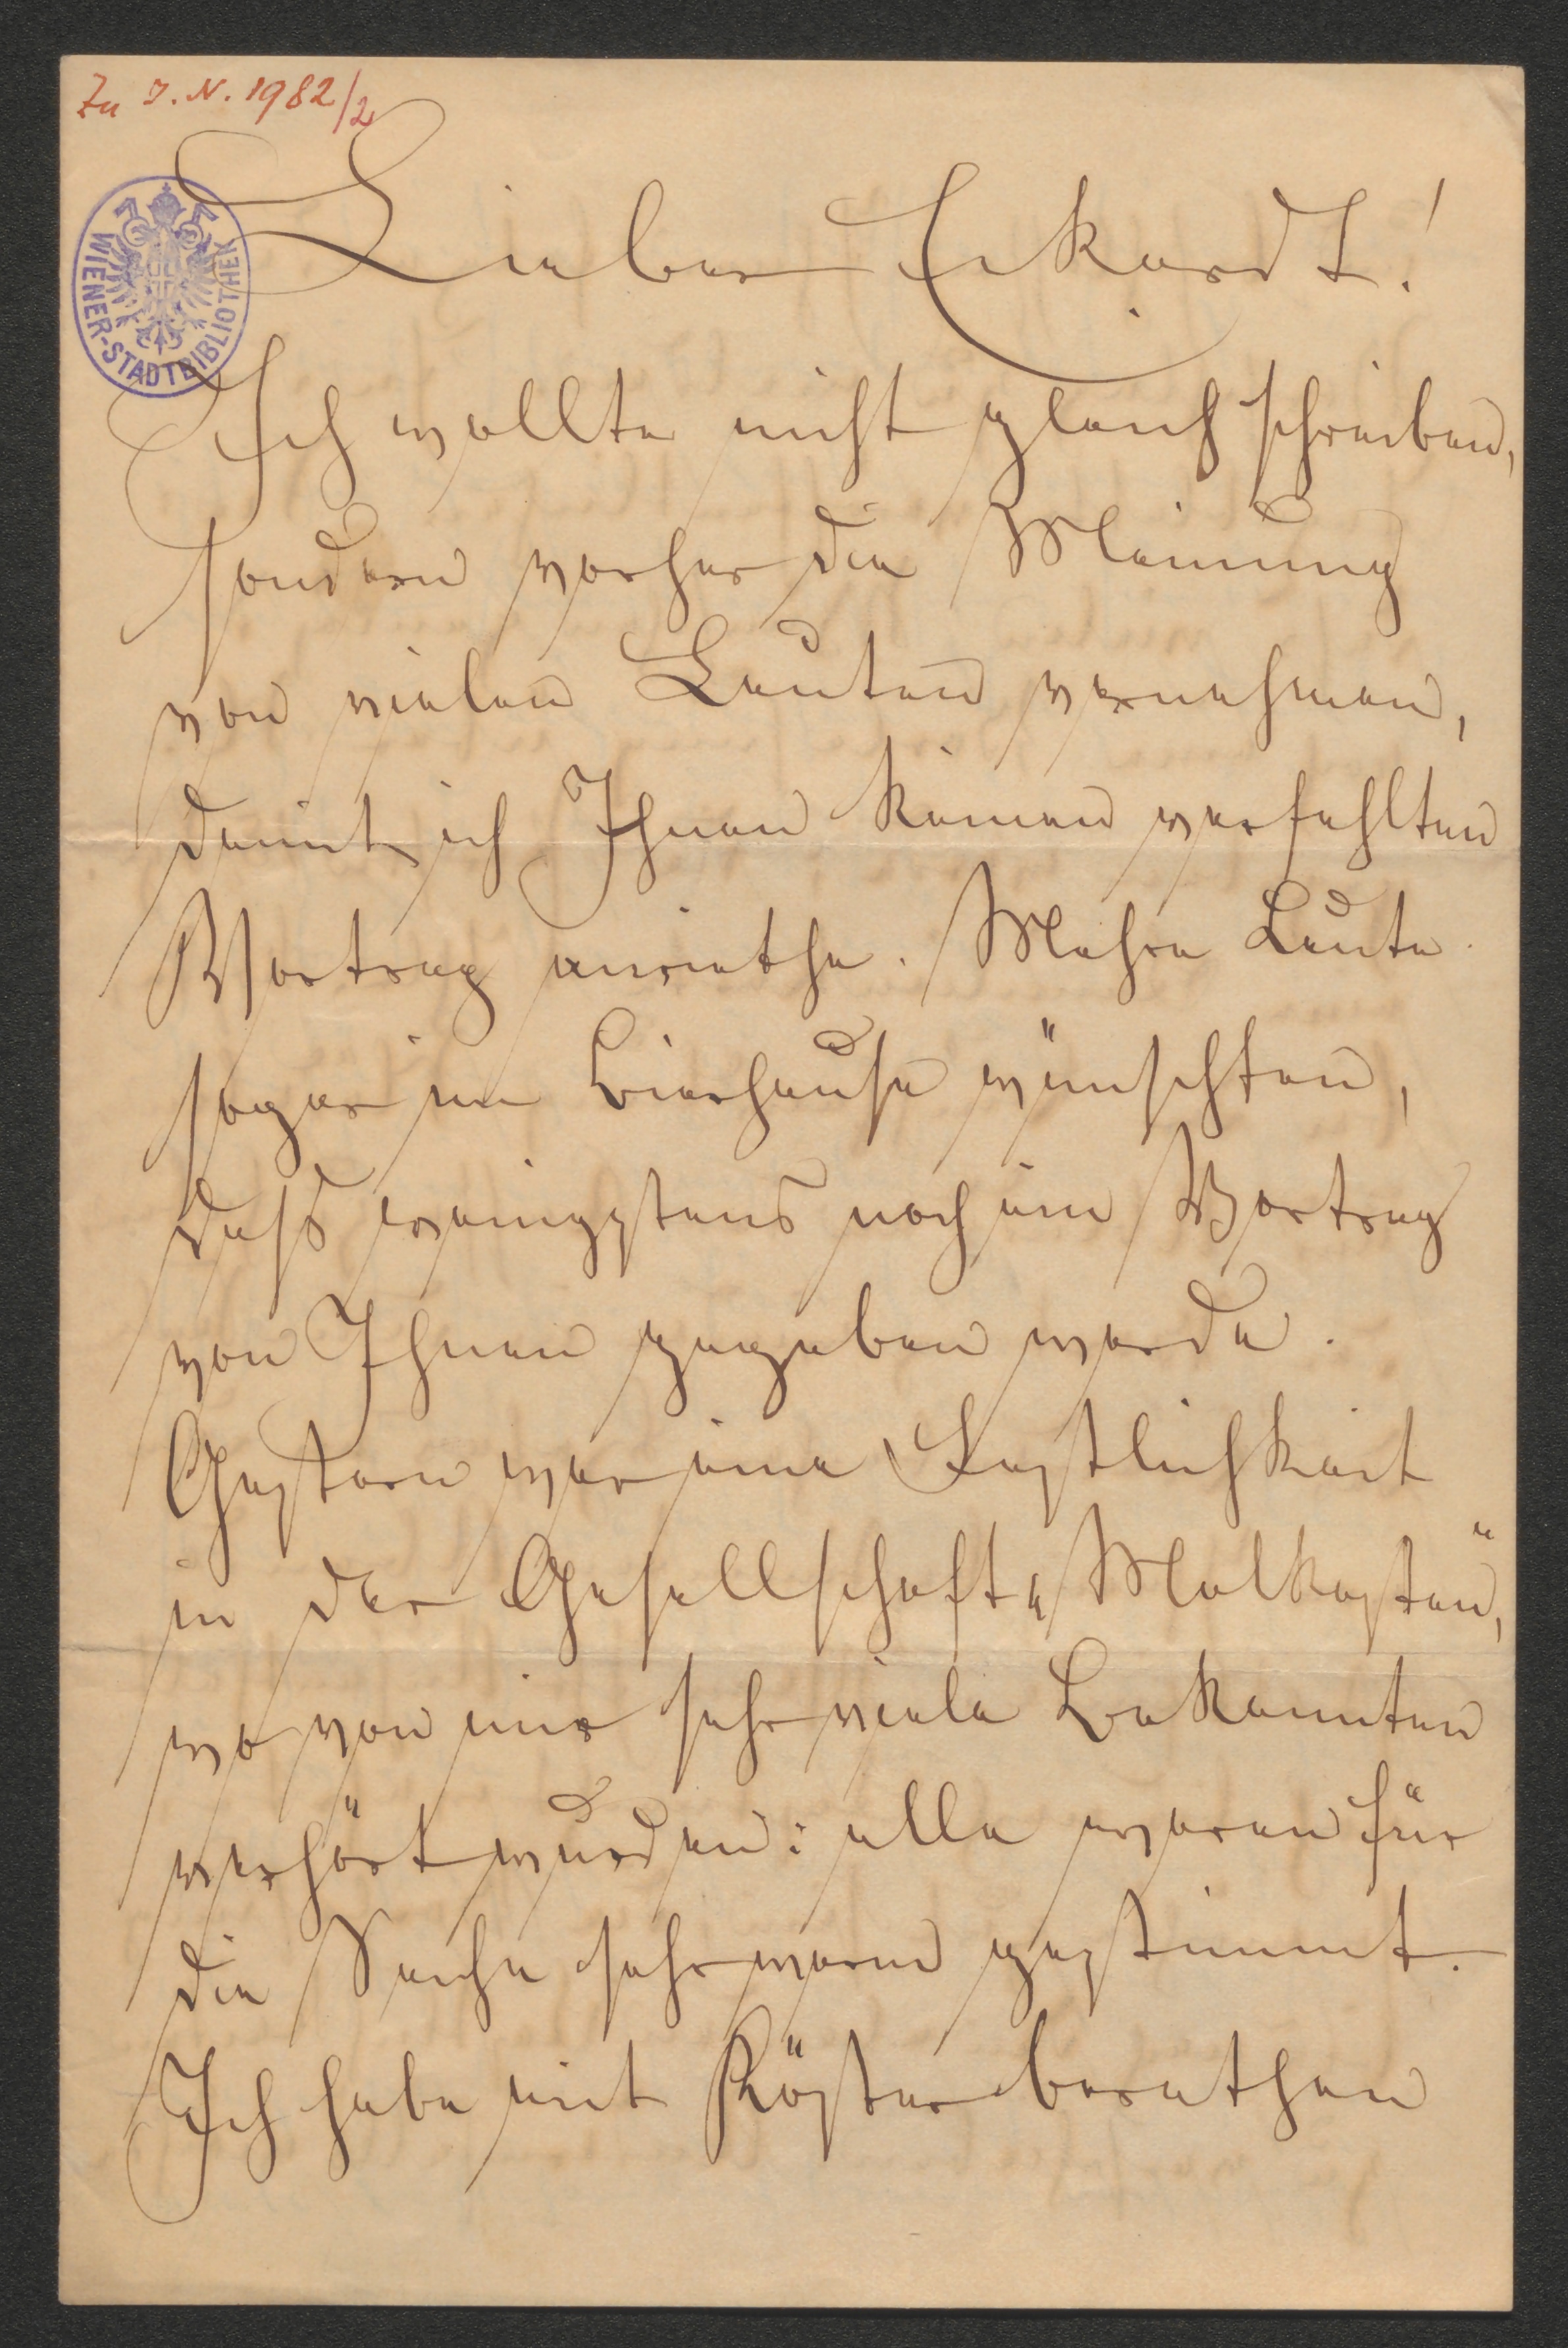 Zu I. N. 1982/2
WIENER-STADTBIBLIOTHEK
Lieber Eckardt!
Ich wollte nicht gleich schreiben,
sondern vorher die Meinung
von vielen Leuten vernehmen,
damit ich Ihnen keinen verfehlten
Vortrag anriethe. Mehre Leute
sogar im Bierhause wünschten,
daß wenigstens noch ein Vortrag
von Ihnen gegeben werde.
Gestern war eine Festlichkeit
in der Gesellschaft „Malkasten“,
wo von mir sehr viele Bekannten
verhört wurden: alle waren für
die Sache sehr warm gestimmt.
Ich habe mit Röster berathen